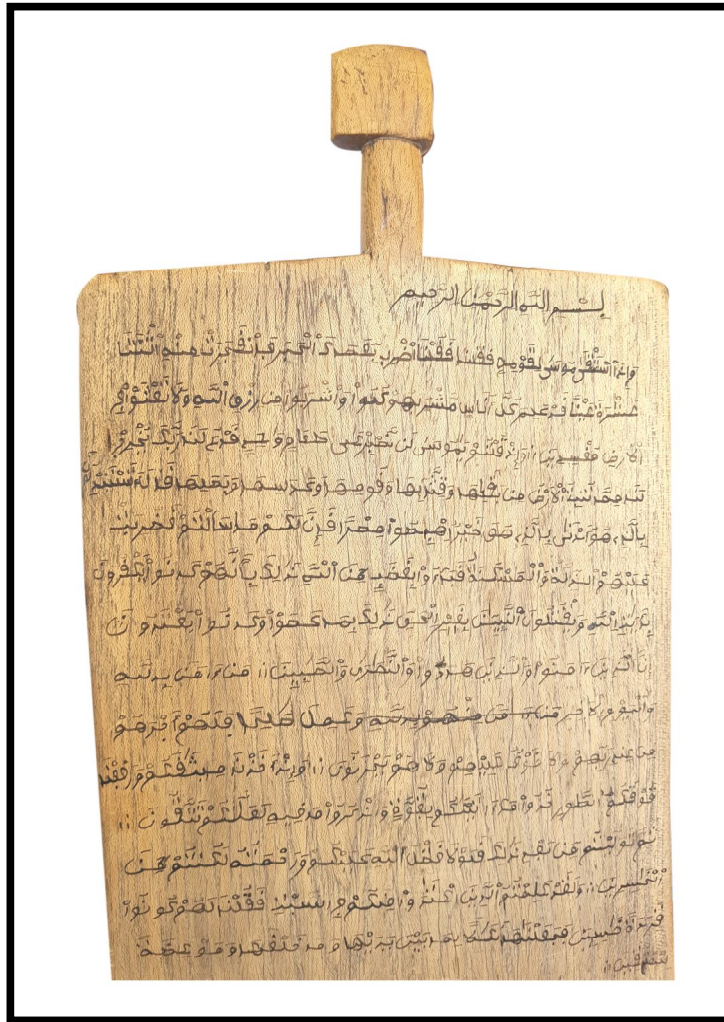 بسم الله الرحمن الرحيم
وإذ استسقى موسى لقومه فقلنا فقلنا اضرب بعصاك الحجر فانفجرت منه اثنتا
عشرة عينا قد علم كل أناس مشربهم كلوا واشربوا من رزق الله ولا تعثوا في
الأرض مفسدين وإذ قلتم يموسى لن نصبر على طعام وحد فادع لنا ربك يخرج
لنا مما تنبت الأرض من بقلها وقثائها وفومها وعدسها وبصلها قال
بالذي هو أدنى بالذي هو خير اهبطوا مصرا فإن لكم ما سألتم
عليهم الذلة والمسكنة بغضب من الله ذلك بأنهم كانوا يكفرون
الله ويقتلون النبيين بغير الحق ذلك بما عصوا وكانوا يعتدون
إن الذين ءامنوا والذين هادوا والنصرى والصبين من ءامن بالله
واليوم الآخر وعمل صلحا فلهم أجرهم
عند ربهم ولا خوف عليهم ولا هم يحزنون وإذ أخذنا ميثقكم ورفعنا
فوقكم الطور خذوا ما بقوة واذكروا ما فيه لعلكم تتقون
ثم توليتم من بعد ذلك فلولا فضل الله عليكم ورحمته لكنتم من
الخسرين ولقد علمتم الذين منكم في السبت فقلنا لهم كونوا
قردة خسين فجعلنها نكلا بين يديها وما خلفها وموعظة
للمتقين